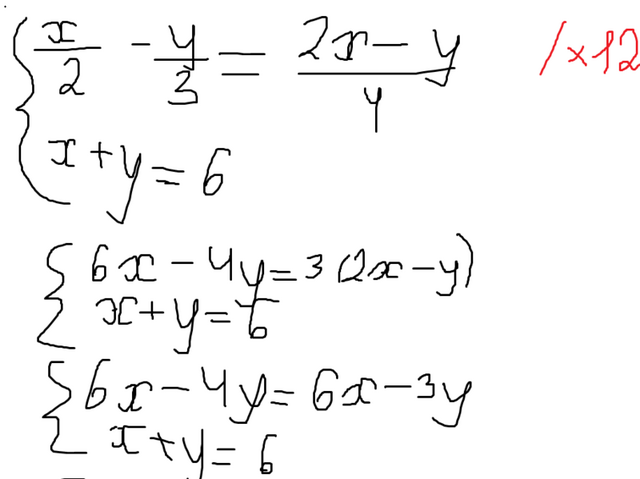 { x/2 - y/3 = (2x - y)/4 /×12
x + y = 6
{ 6x - 4y = 3(2x - y)
x + y = 6
{ 6x - 4y = 6x - 3y
x + y = 6